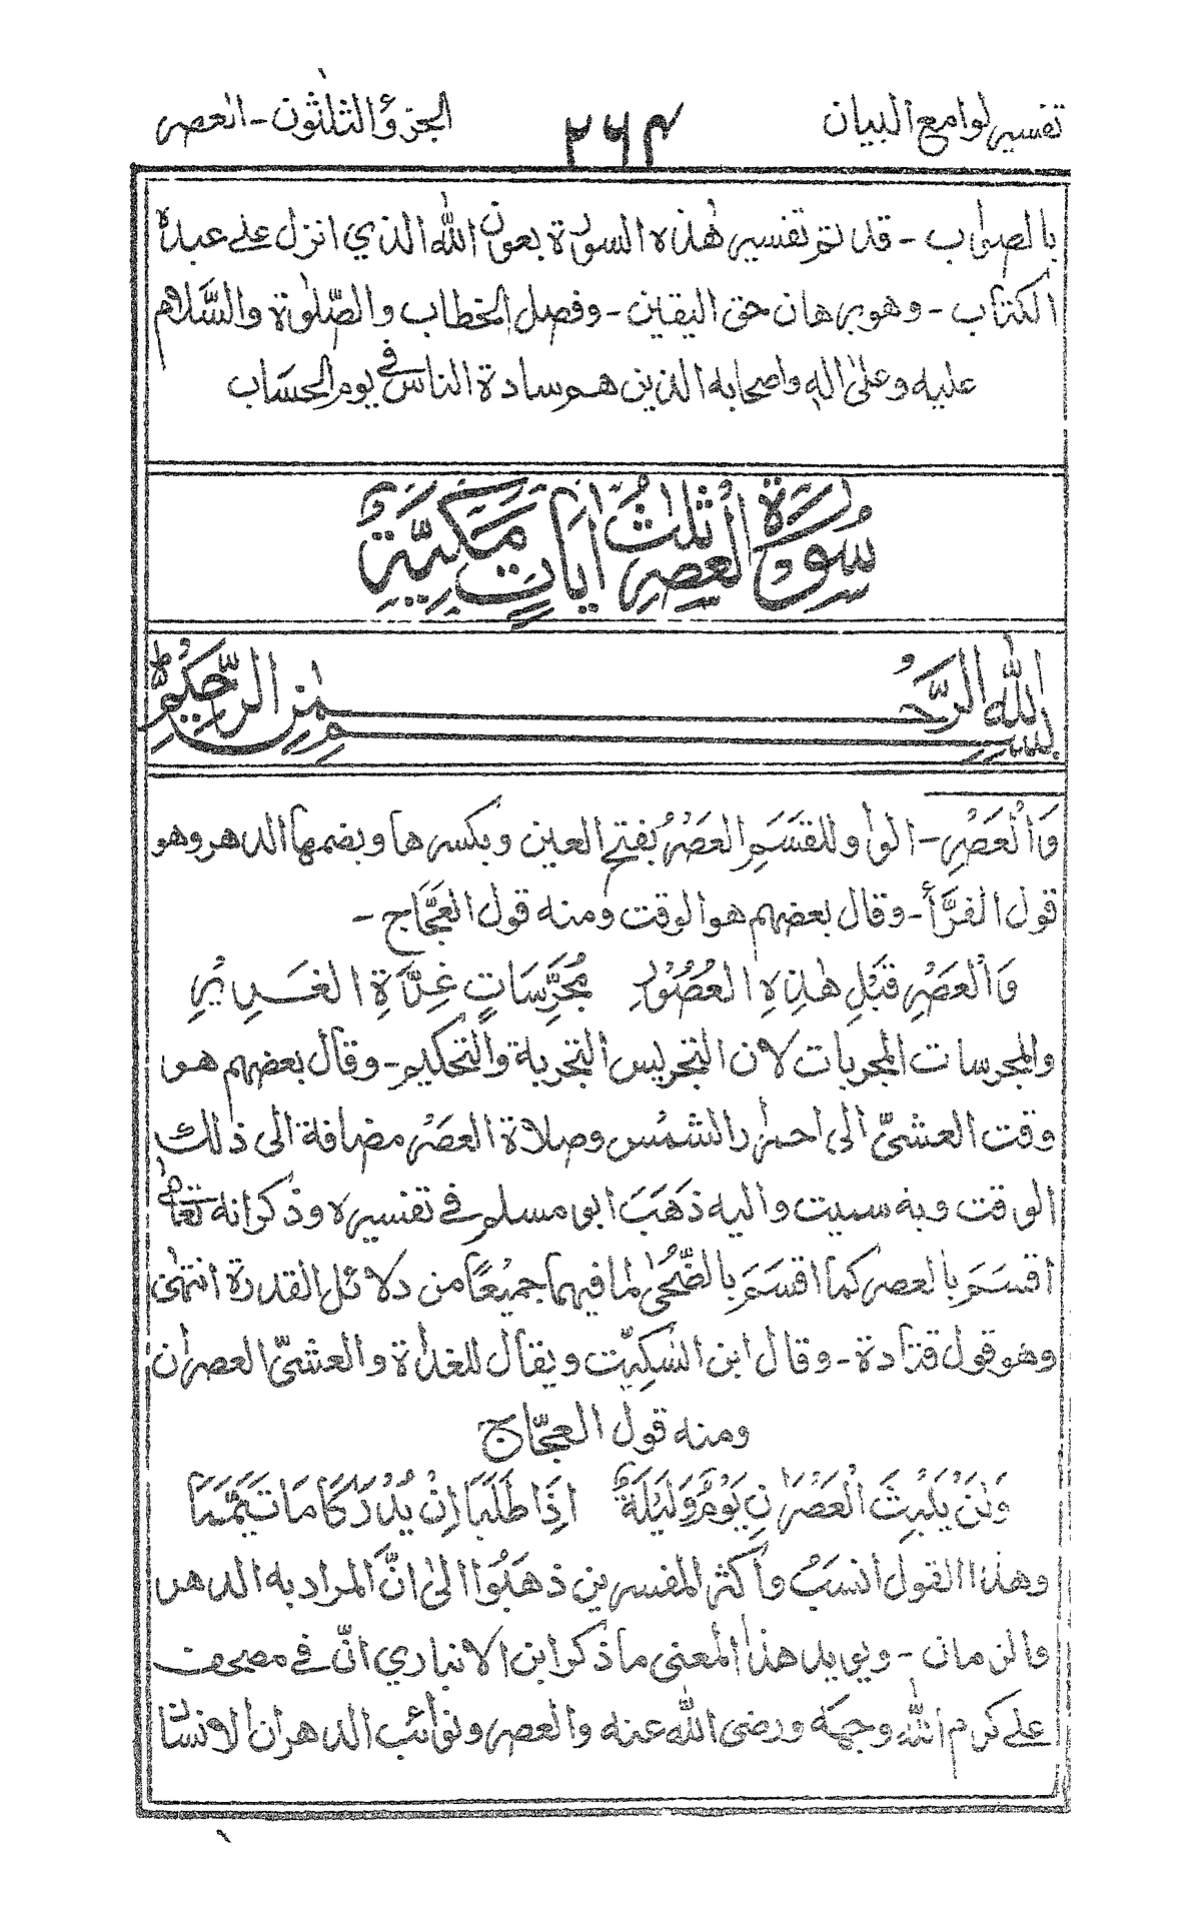 تفسير لوامع البيان ٢٦٤ الجزء الثلثون - العصر
بالصواب - قد تم تفسير هذه السورة بعون الله الذي انزل على عبده
الكتاب - وهو برهان حق اليقين - وفصل الخطاب والصّلوٰة والسَّلام
عليه وعلىٰ اٰله واصحابه الذين هم سادة الناس في يوم الحساب
سُوْرَةُ العَصْرِ ثلٰثُ اٰيَاتٍ مَكِّيَّةٌ
بسم الله الرحمٰن الرحيم
وَالْعَصْرِ - الواو للقَسَمِ العَصْرُ بفتح العين وبكسرها وبضمها الدهر وهو
قول الفرَّأ - وقال بعضهم هو الوقت ومنه قول العَجَّاج -
وَالْعَصْرِ قَبْلِ هٰذِهِ العُصُوْرِ مُجَرِّسَاتٍ غِرَّةِ الغَـرِيْرِ
والمجرسات المجربات لان التجريس التجربة والتحكيم - وقال بعضهم هو
وقت العشيّ الى احمرار الشمس وصلاة العصر مضافة الى ذلك
الوقت وبه سميت واليه ذهَبَ ابى مسلم في تفسيره وذكر انه تعالىٰ
اقسَمَ بالعصر كما اقسَمَ بالضُّحىٰ لما فيهما جميْعًا من دلائل القدرة انتهىٰ
وهو قول قتادة - وقال ابن السّكيّت ويقال للغداة والعشيّ العصران
ومنه قول العجّاج
وَلَنْ يَلْبِثَ الْعَصْرَانِ يَوْمٌ وَلَيْلَةٌ اِذَا طَلَبَا اِنْ يُدْرَكَا مَا تَيَمَّمَا
وهذا القول انسَبُ واكثر المفسرين ذهَبُوا الىٰ انَّ المراد به الدهر
والزمان - ويويد هذا المعنى ما ذكر ابن الانباري انّ في مصحف
على كرم الله وجهه ورضى الله عنه والعصر ونوائب الدهر ان الانسان